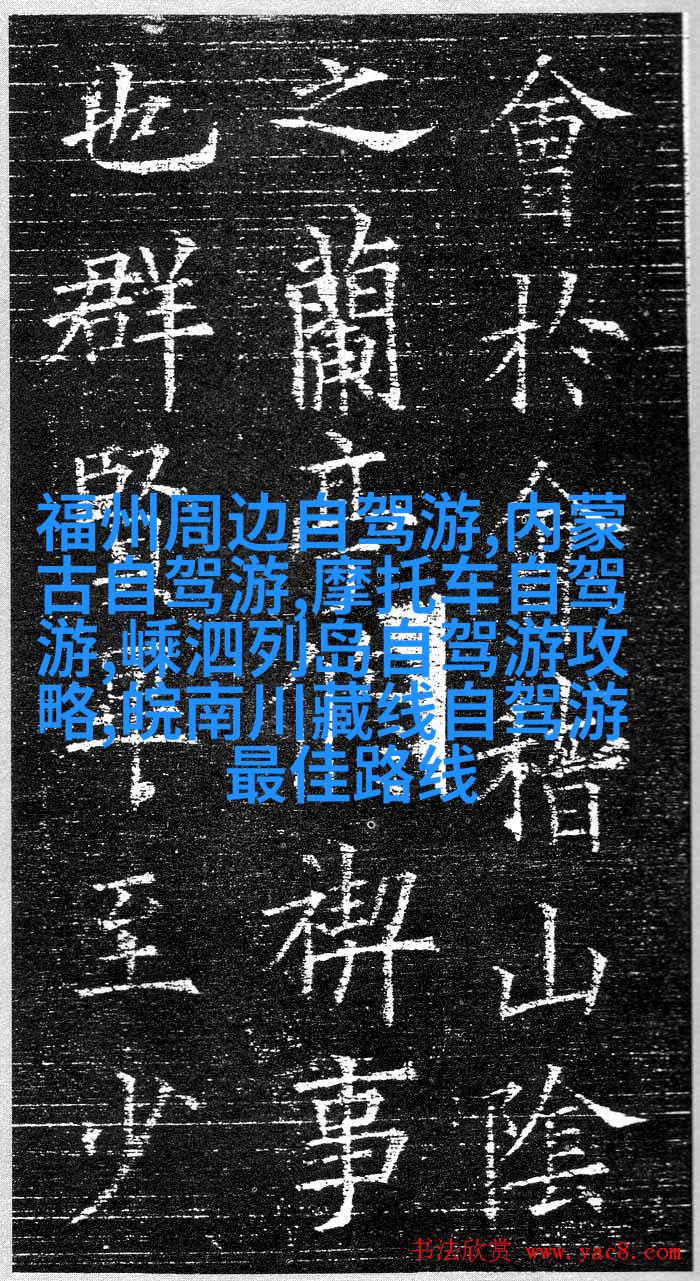 會於會稽山陰
之蘭亭禊事
也群賢畢至少
福州周边自驾游,内蒙
古自驾游,摩托车自驾
游,嵊泗列岛自驾游攻
略,皖南川藏线自驾游
最佳路线
书法欣赏 www.yac8.com